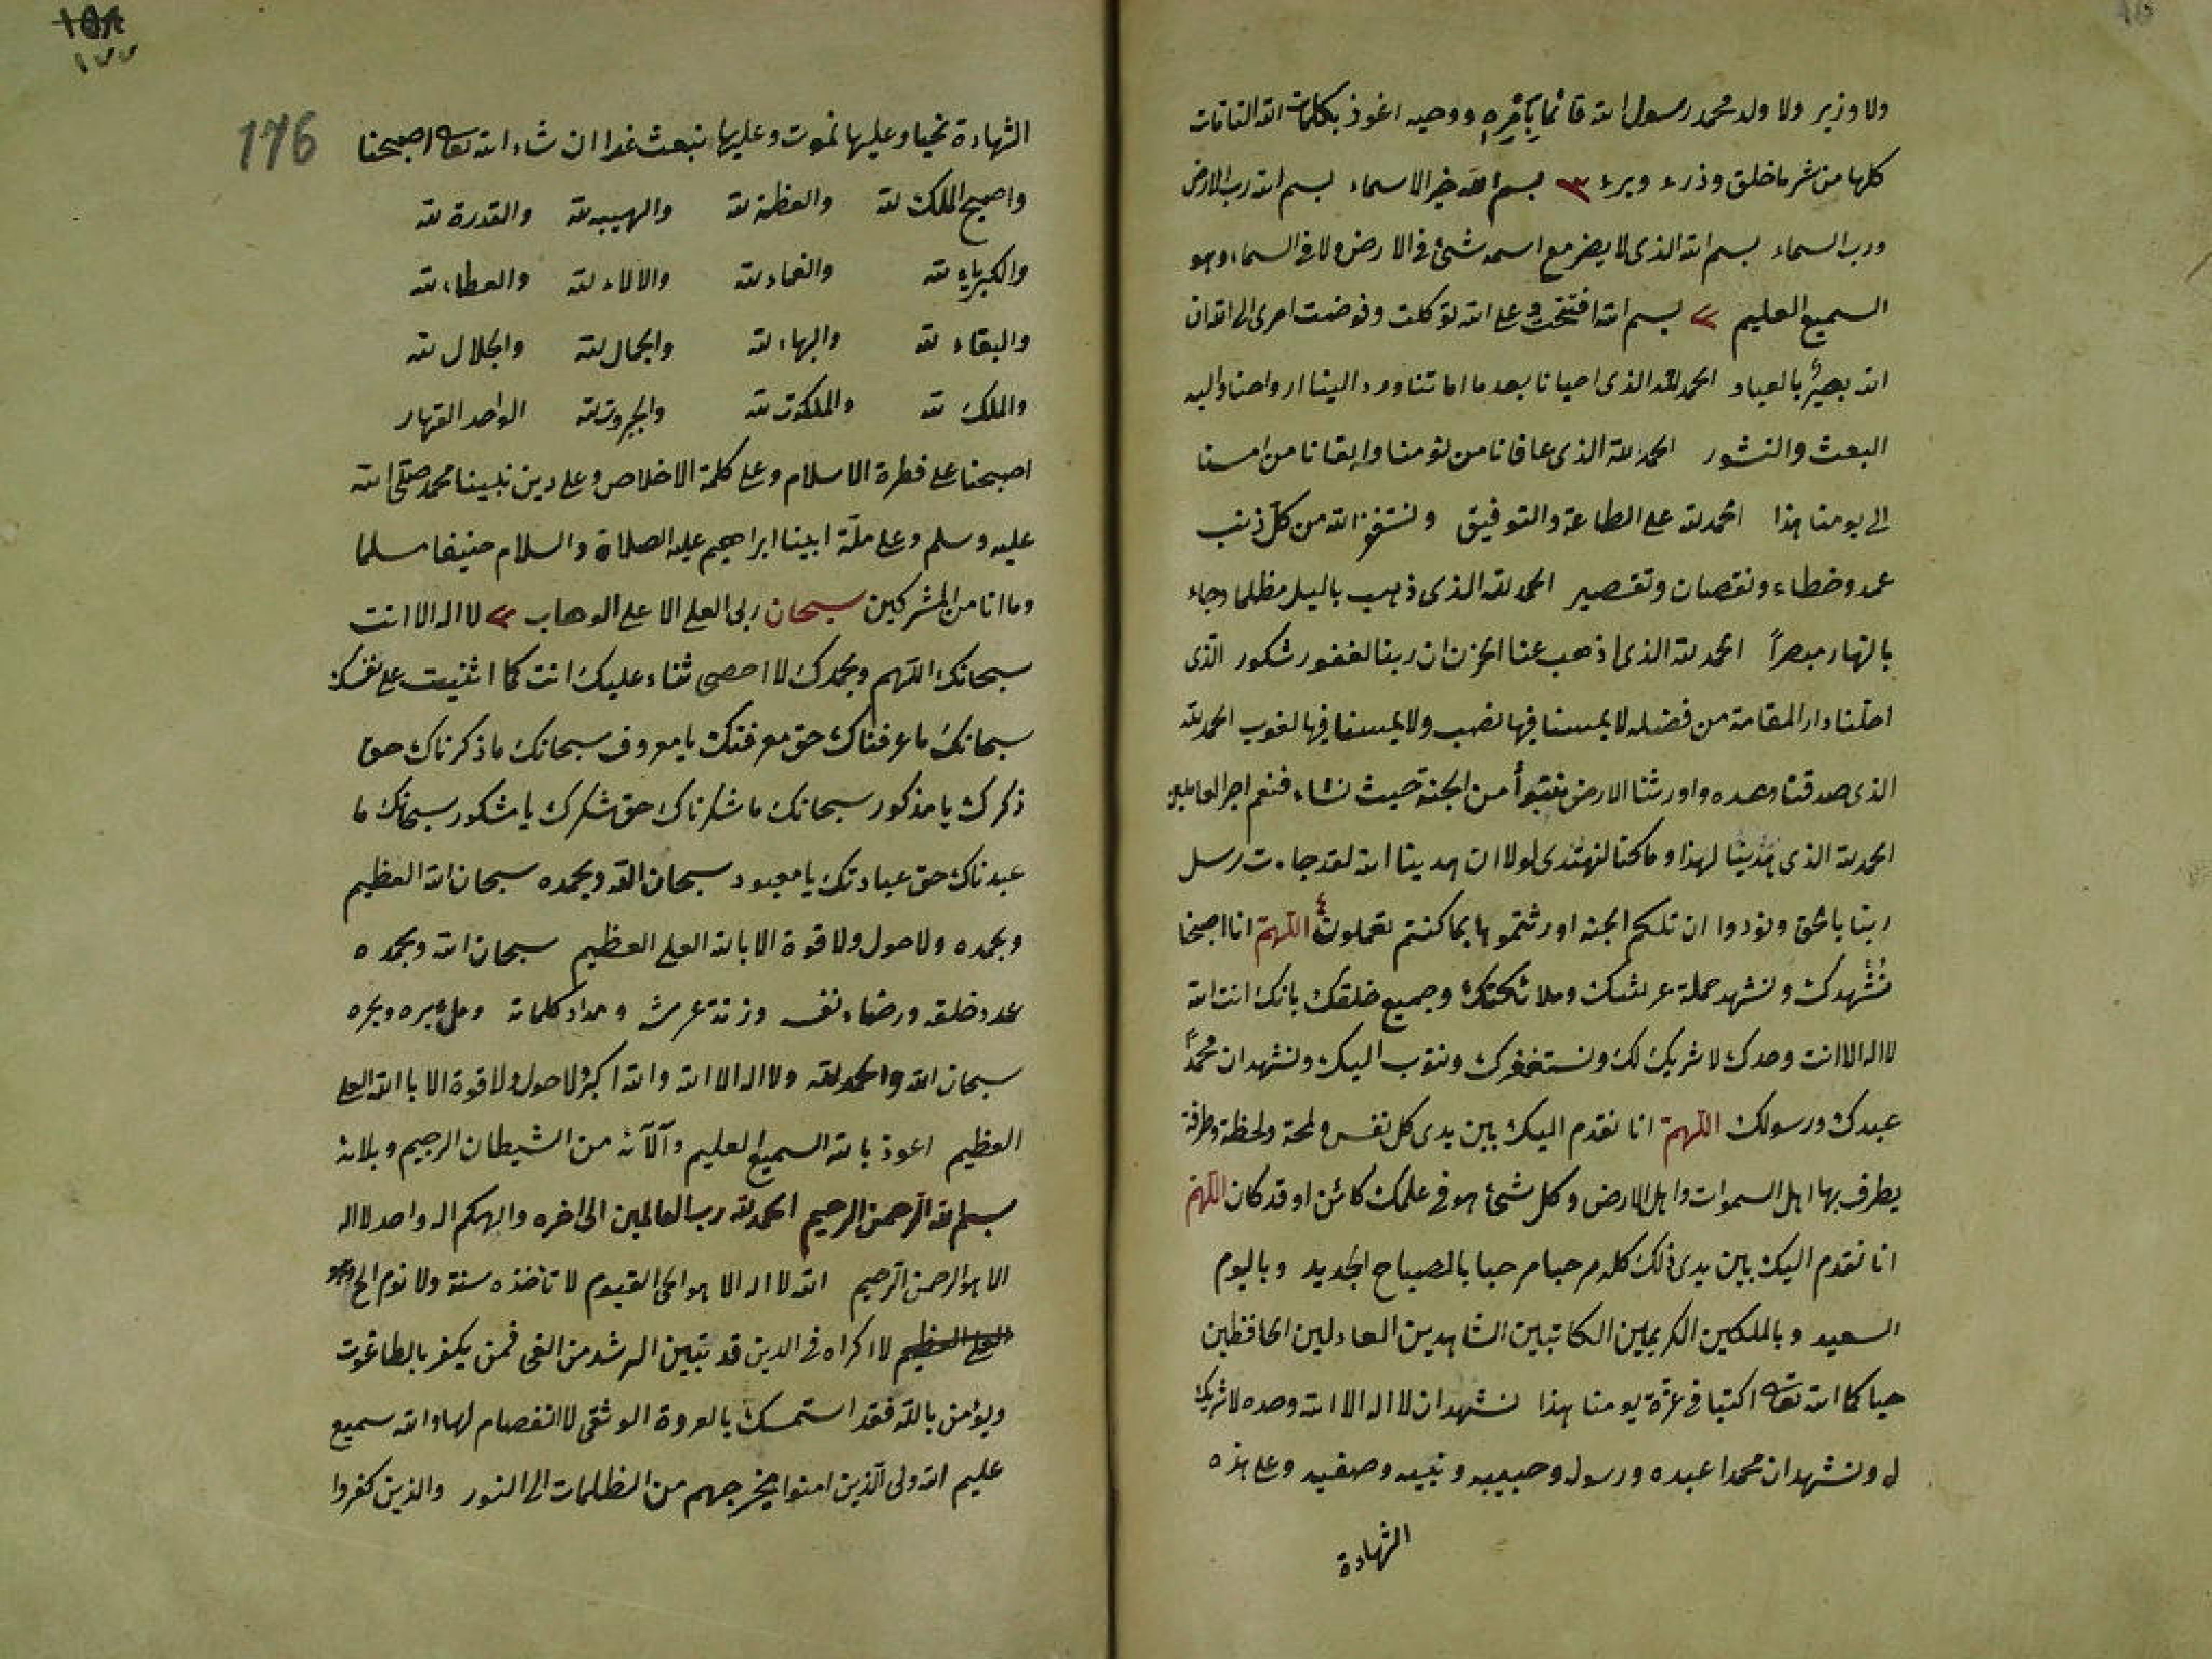 ولا وزير ولا ولد محمد رسول الله قائما بامره ووحيه اعوذ بكلمات الله التامات
كلها من شر ما خلق وذرء وبرء ٣ بسم الله خير الاسماء بسم الله رب الارض
ورب السماء بسم الله الذى لا يضر مع اسمه شئ فى الارض ولا فى السماء وهو
السميع العليم بسم الله افتتحت وعلى الله توكلت وفوضت امرى الى الله ان
الله بصير بالعباد الحمد لله الذى احيانا بعد ما اماتنا ورد الينا ارواحنا واليه
البعث والنشور الحمد لله الذى عافانا من نومنا وابقانا من امسنا
الى يومنا هذا الحمد لله على الطاعة والتوفيق ونستغفر الله من كل ذنب
عمد وخطاء ونقصان وتقصير الحمد لله الذى ذهب بالليل مظلما وجاء
بالنهار مبصراً الحمد لله الذى اذهب عنا الحزن ان ربنا لغفور شكور الذى
احلنا دار المقامة من فضله لا يمسنا فيها نصب ولا يمسنا فيها لغوب الحمد لله
الذى صدقنا وعده واورثنا الارض نتبوأ من الجنة حيث نشاء فنعم اجر العاملين
الحمد لله الذى هدينا لهذا وما كنا لنهتدى لولا ان هدينا الله لقد جاءت رسل
ربنا بالحق ونودوا ان تلكم الجنة اورثتموها بما كنتم تعملون ٤ اللهم انا اصبحنا
نُشهدك ونشهد حملة عرشك وملائكتك وجميع خلقك بانك انت الله
لا اله الا انت وحدك لا شريك لك ونستغفرك ونتوب اليك ونشهد ان محمداً
عبدك ورسولك اللهم انا نقدم اليك بين يدى كل نفس ولمحة ولحظة وطرفة
يطرف بها اهل السموات واهل الارض وكل شئ هو فى علمك كائن او قد كان اللهم
انا نقدم اليك بين يدى ذلك كله مرحبا مرحبا بالصباح الجديد وباليوم
السعيد وبالملكين الكريمين الكاتبين الشاهدين العادلين الحافظين
حياكما الله تعالى اكتبا فى غرة يومنا هذا نشهد ان لا اله الا الله وحده لا شريك
له ونشهد ان محمدا عبده ورسوله وحبيبه ونبيه وصفيه وعلى هذه
الشهادة
١٥٨
١٧٧
176
الشهادة نحيا وعليها نموت وعليها نبعث غدا ان شاء الله تعالى اصبحنا
واصبح الملك لله والعظمة لله والهيبة لله والقدرة لله
والكبرياء لله والنعماء لله والالاء لله والعطاء لله
والبقاء لله والبهاء لله والجمال لله والجلال لله
والملك لله والملكوت لله والجبروت لله الواحد القهار
اصبحنا على فطرة الاسلام وعلى كلمة الاخلاص وعلى دين نبينا محمد صلى الله
عليه وسلم وعلى ملة ابينا ابراهيم عليه الصلاة والسلام حنيفا مسلما
وما انا من المشركين سبحان ربى العلى الاعلى الوهاب لا اله الا انت
سبحانك اللهم وبحمدك لا احصى ثناء عليك انت كما اثنيت على نفسك
سبحانك ما عرفناك حق معرفتك يا معروف سبحانك ما ذكرناك حق
ذكرك يا مذكور سبحانك ما شكرناك حق شكرك يا مشكور سبحانك ما
عبدناك حق عبادتك يا معبود سبحان الله وبحمده سبحان الله العظيم
وبحمده ولا حول ولا قوة الا بالله العلى العظيم سبحان الله وبحمده
عدد خلقه ورضاء نفسه وزنة عرشه ومداد كلماته وملء بره وبحره
سبحان الله والحمد لله ولا اله الا الله والله اكبر ولا حول ولا قوة الا باالله العلى
العظيم اعوذ بالله السميع العليم وآلآئه من الشيطان الرجيم وبلائه
بسم الله الرحمن الرحيم الحمد لله رب العالمين الى اخره والهكم اله واحد لا اله
الا هو الرحمن الرحيم الله لا اله الا هو الحى القيوم لا تاخذه سنة ولا نوم الخ وهو
العلى العظيم لا اكراه فى الدين قد تبين الرشد من الغى فمن يكفر بالطاغوت
ويؤمن بالله فقد استمسك بالعروة الوثقى لا انفصام لها والله سميع
عليم الله ولى الذين امنوا يخرجهم من الظلمات الى النور والذين كفروا